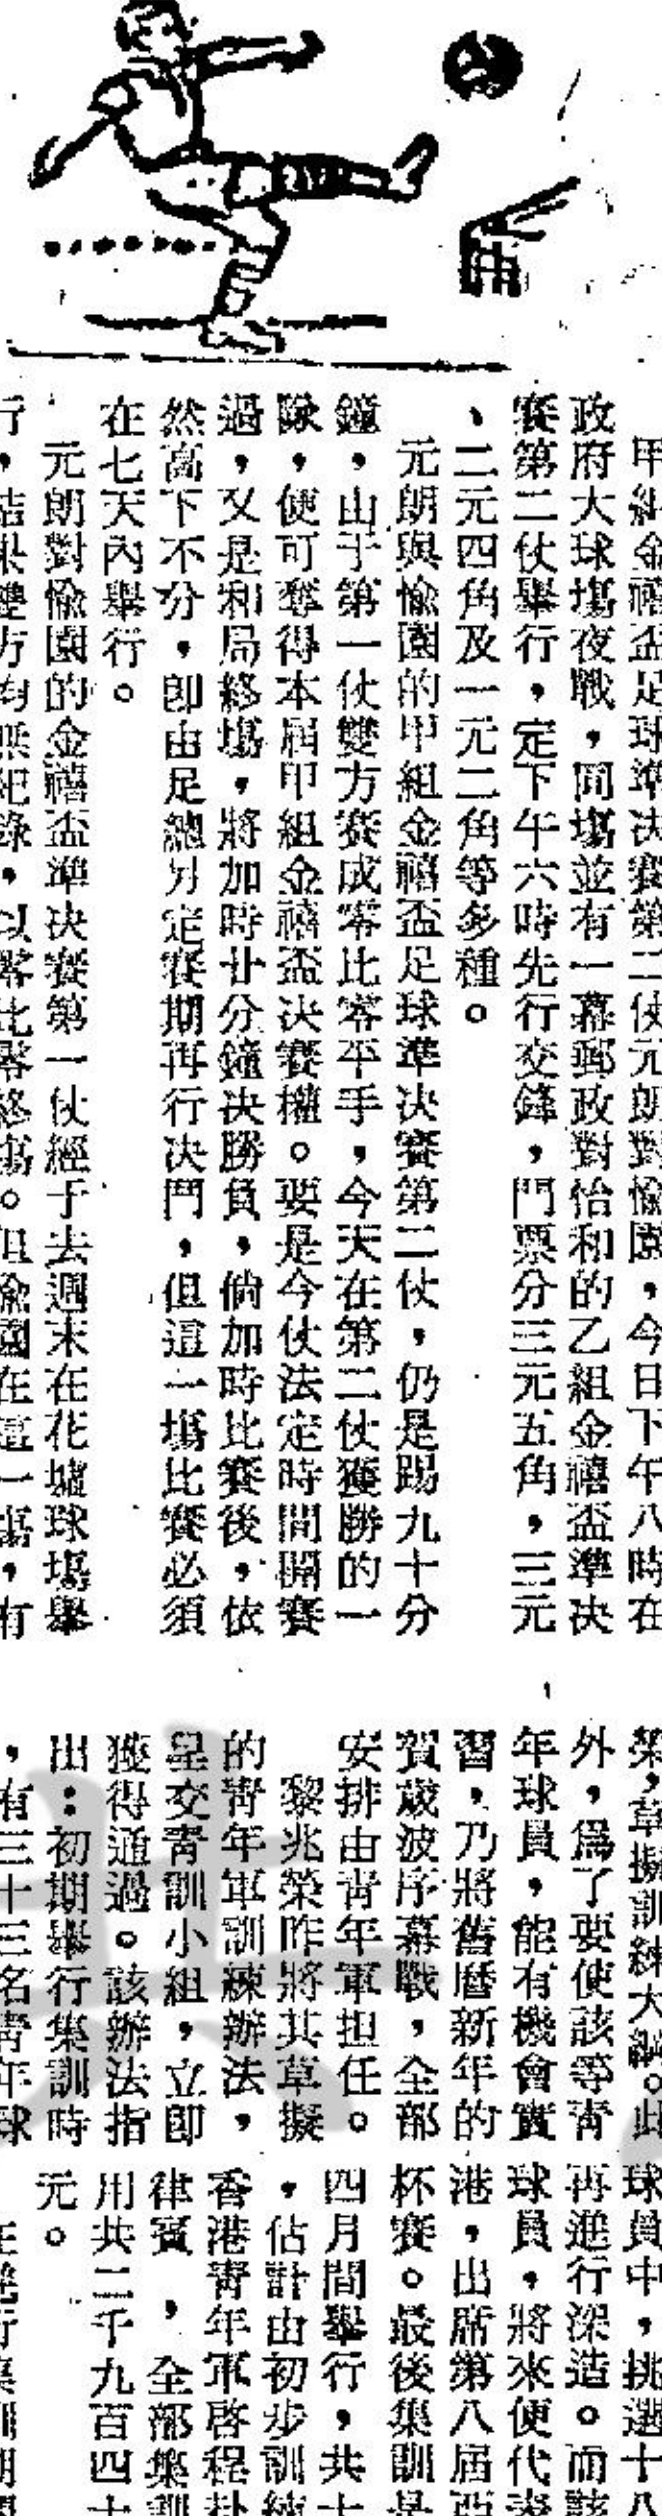 甲組金禧盃足球準决賽第二仗元朗對愉園，今日下午八時在
政府大球塲夜戰，同塲並有一幕郵政對怡和的乙組金禧盃準决
賽第二仗舉行，定下午六時先行交鋒，門票分三元五角，三元
、二元四角及一元二角等多種。
元朗與愉園的甲組金禧盃足球準决賽第二仗，仍是踢九十分
鐘，山于第一仗雙方賽成零比零平手，今天在第二仗獲勝的一
隊，便可奪得本屆甲組金禧盃决賽權。要是今仗法定時間開賽
過，又是和局終塲，將加時廿分鐘决勝負，倘加時比賽後，依
然高下不分，卽由足總另定賽期再行决鬥，但這一塲比賽必須
在七天內舉行。
元朗對愉園的金禧盃準决賽第一仗經于去週末在花墟球塲舉
行，結果雙方均無紀錄，以零比零終塲。但愉園在這一塲，有
榮，草擬訓練大綱。此
外，爲了要使該等靑
年球員，能有機會實
習，乃將舊曆新年的
賀歲波序幕戰，全部
安排由靑年軍担任。
黎兆榮昨將其草擬
的靑年軍訓練辦法，
呈交靑訓小組，立卽
獲得通過。該辦法指
出：初期舉行集訓時
，有三十三名靑年球
球員中，挑選十八
再進行深造。而該
球員，將來便代表
港，出席第八屆亞
杯賽。最後集訓是
四月間舉行，共十
，估計由初步訓練
香港靑年軍啓程赴
律賓，全部集訓
用共二千九百四十
元。